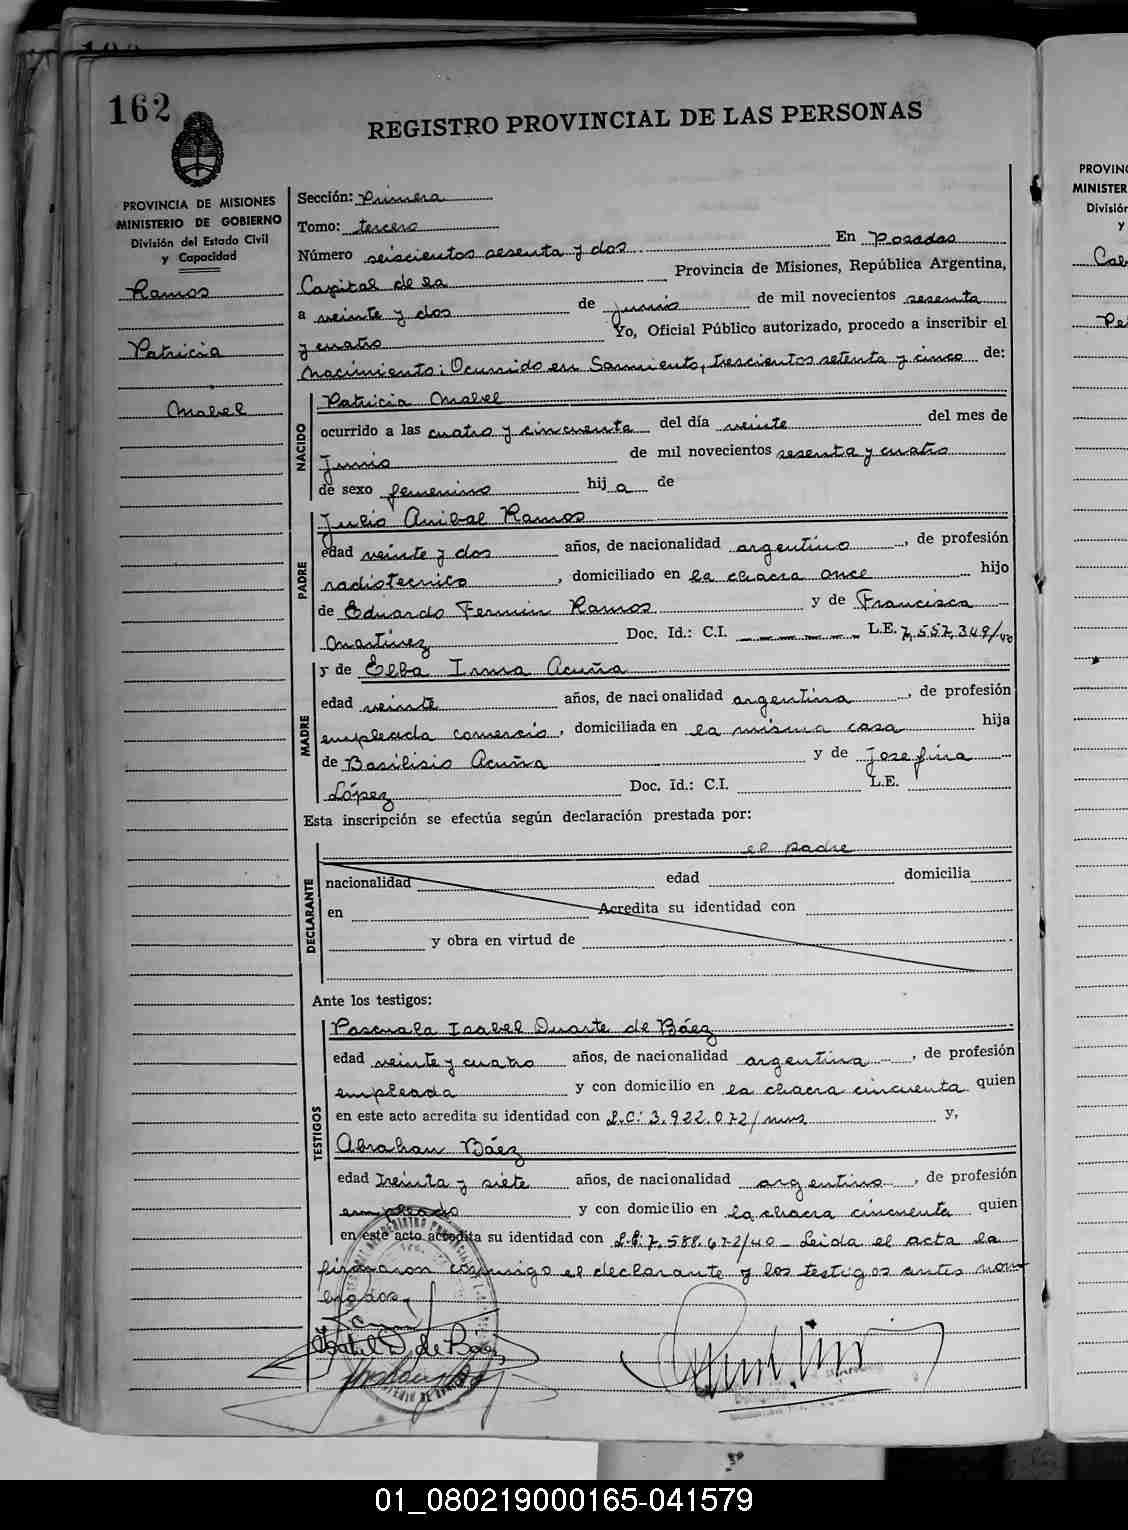 162
REGISTRO PROVINCIAL DE LAS PERSONAS
PROVINCIA DE MISIONES
MINISTERIO DE GOBIERNO
División del Estado Civil
y Capacidad
Ramos
Patricia
Mabel
Sección: Primera
Tomo: tercero
Número seiscientos sesenta y dos En Posadas
Capital de la Provincia de Misiones, República Argentina,
a veinte y dos de junio de mil novecientos sesenta
y cuatro Yo, Oficial Público autorizado, procedo a inscribir el
nacimiento: Ocurrido en Sarmiento, trescientos setenta y cinco de:
NACIDO
Patricia Mabel
ocurrido a las cuatro y cincuenta del día veinte del mes de
Junio de mil novecientos sesenta y cuatro
de sexo femenino hij a de
PADRE
Julio Anibal Ramos
edad veinte y dos años, de nacionalidad argentino, de profesión
radiotecnico, domiciliado en la chacra once hijo
de Eduardo Fermin Ramos y de Francisca
Martínez Doc. Id.: C.I. L.E. 7.557.349/40
MADRE
y de Elba Irma Acuña
edad veinte años, de nacionalidad argentina, de profesión
empleada comercio, domiciliada en la misma casa hija
de Basilisio Acuña y de Josefina
López Doc. Id.: C.I. L.E.
Esta inscripción se efectúa según declaración prestada por:
DECLARANTE
el padre
nacionalidad edad domicilia
en Acredita su identidad con
y obra en virtud de
Ante los testigos:
TESTIGOS
Pascuala Isabel Duarte de Báez
edad veinte y cuatro años, de nacionalidad argentina, de profesión
empleada y con domicilio en la chacra cincuenta quien
en este acto acredita su identidad con L.C: 3.922.072/mns y,
Abrahan Báez
edad treinta y siete años, de nacionalidad argentino, de profesión
empleado y con domicilio en la chacra cincuenta quien
en este acto acredita su identidad con L.E: 7.588.672/40 Leida el acta la
firmaron conmigo el declarante y los testigos antes nom
brados.
Isabel D. de Baez
PROVIN
MINISTER
División
y
01_080219000165-041579